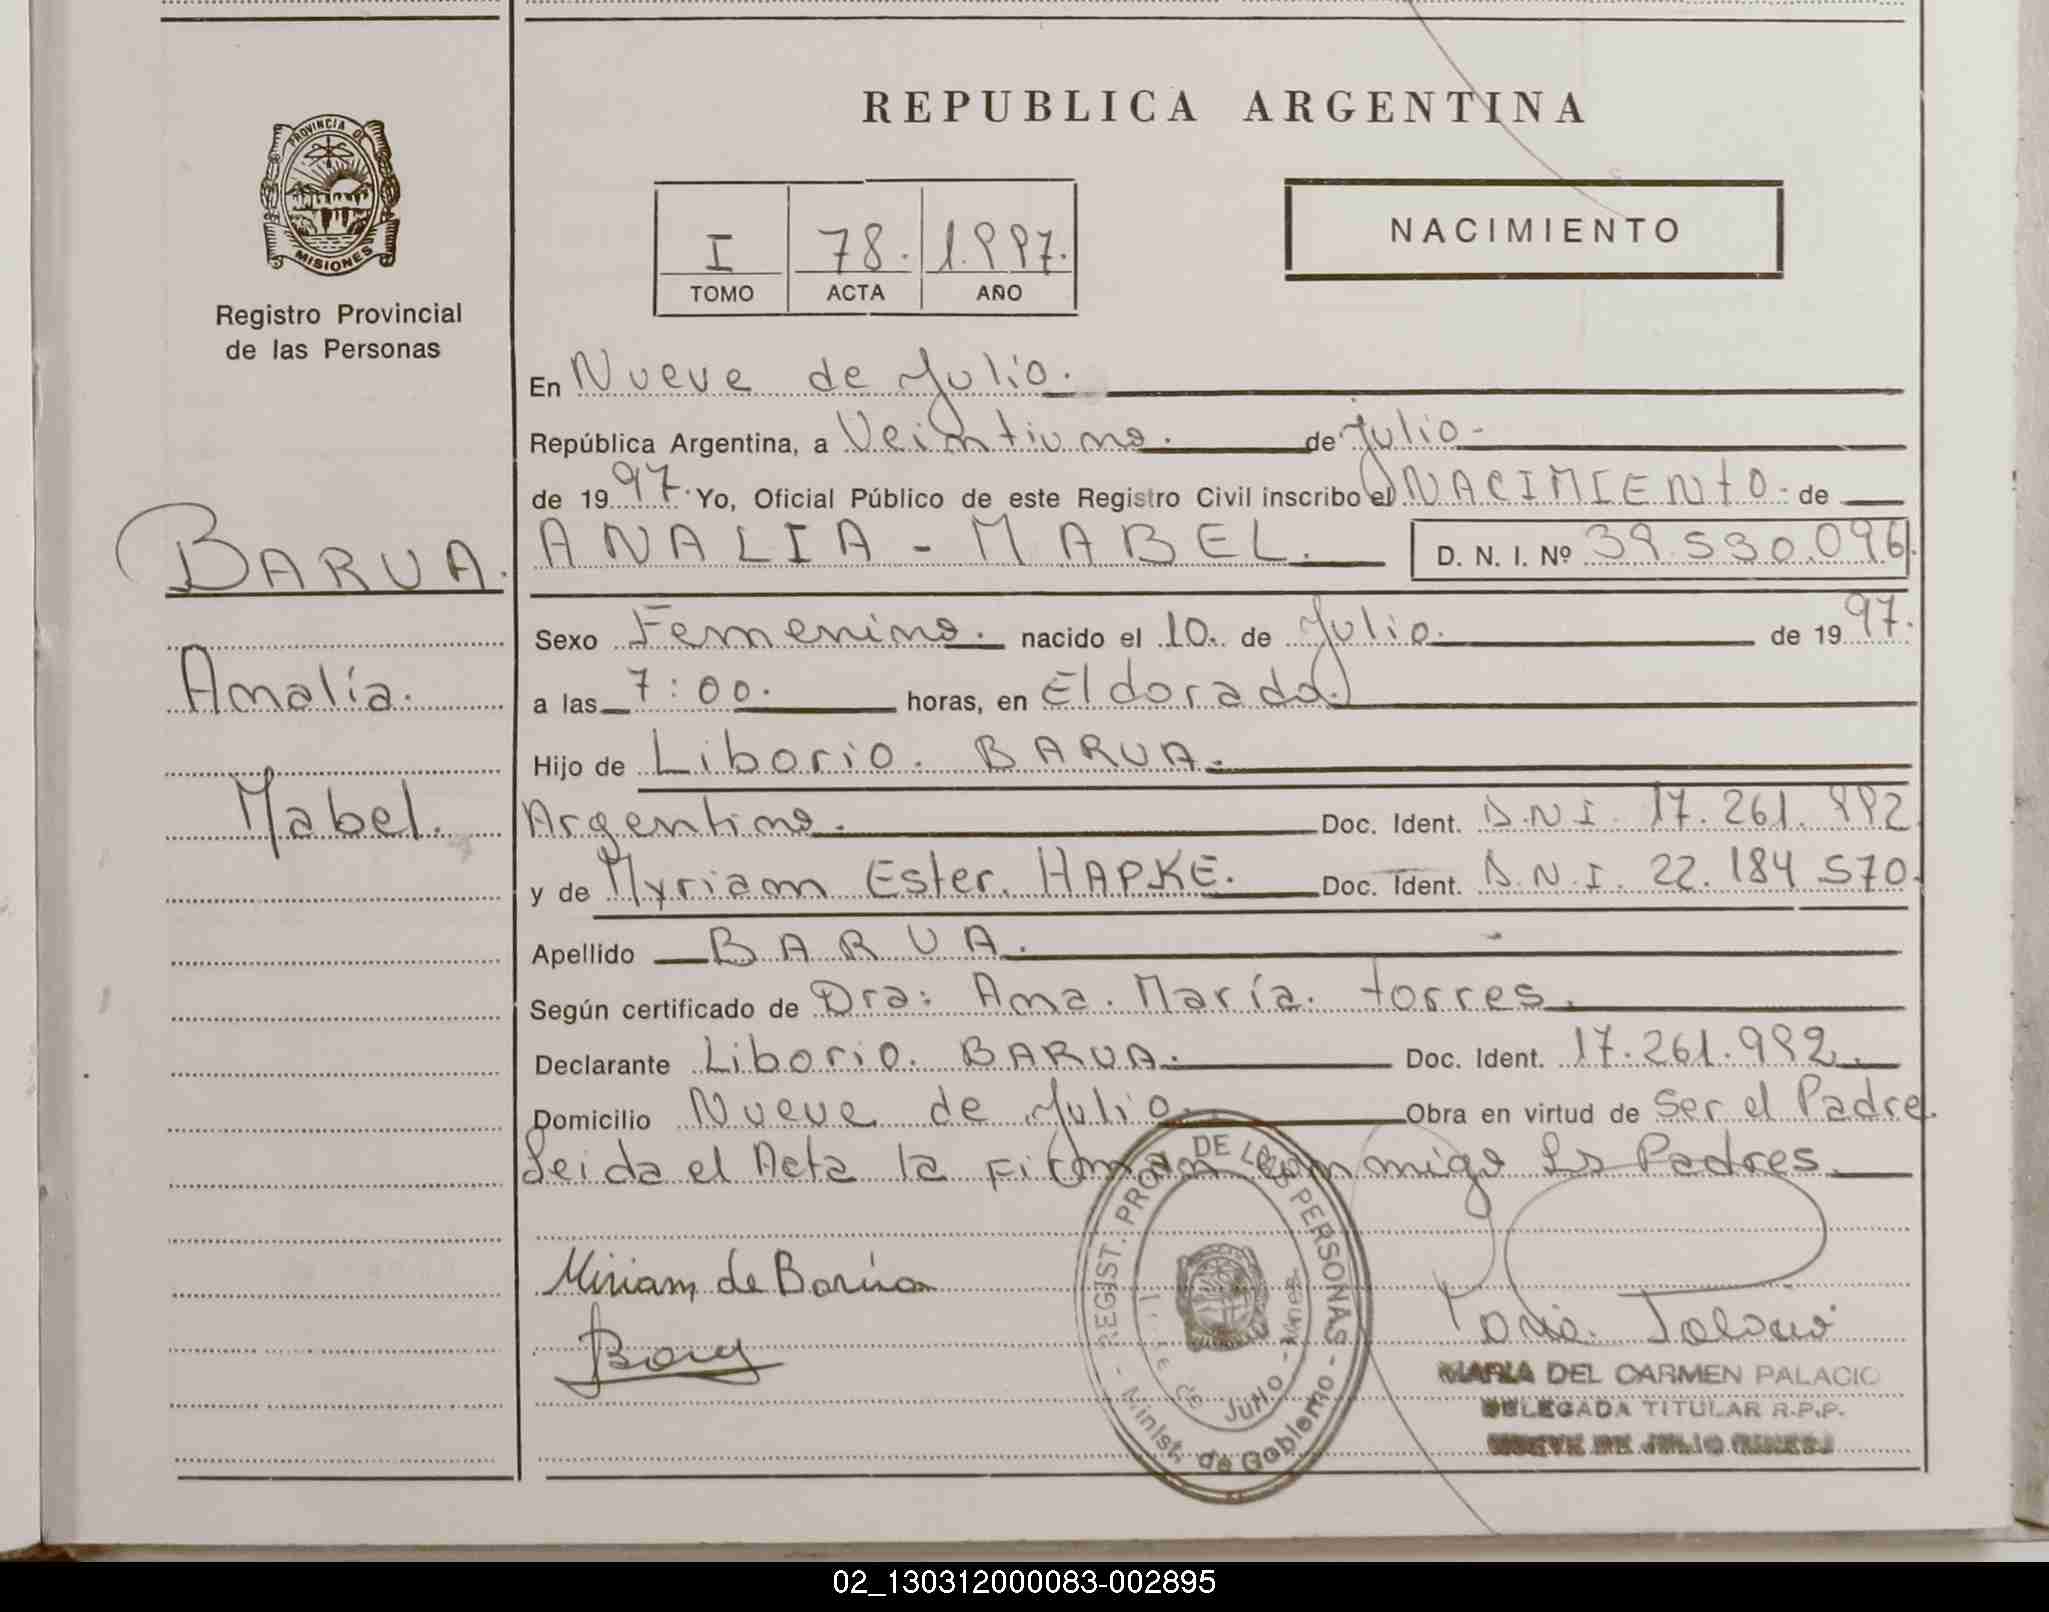 REPUBLICA ARGENTINA
PROVINCIA DE
MISIONES
Registro Provincial
de las Personas
I 78. 1.997.
TOMO ACTA AÑO
NACIMIENTO
En Nueve de Julio.
República Argentina, a Veintiuno. de Julio-
de 1997. Yo, Oficial Público de este Registro Civil inscribo el NACIMIENTO- de
BARUA. ANALIA - MABEL. D. N. I. Nº 39.530.096.
Sexo Femenino. nacido el 10. de Julio. de 1997.
Analía. a las 7:00. horas, en Eldorado.
Hijo de Liborio. BARUA.
Mabel. Argentino. Doc. Ident. D.N.I. 17.261.992.
y de Myriam Ester. HAPKE. Doc. Ident. D.N.I. 22.184.570.
Apellido BARUA.
Según certificado de Dra: Ana. María. Torres.
Declarante Liborio. BARUA. Doc. Ident. 17.261.992.
Domicilio Nueve de Julio. Obra en virtud de Ser el Padre.
Leida el Acta la Firman conmigo los Padres.
Miriam de Barúa
REGIST. PROV. DE LAS PERSONAS
- Minist. de Gobierno -
de Julio - Mnes.
MARIA DEL CARMEN PALACIO
DELEGADA TITULAR R.P.P.
NUEVE DE JULIO (MNES.)
02_130312000083-002895